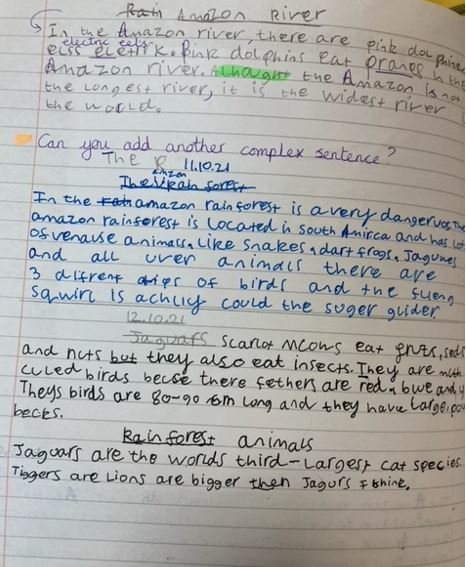 Rain Amazon River
In the Amazon river, there are pink dolphine
electric eels
eess eletrik. Pink dolphins eat pranas in the
Amazon river. Althought the Amazon is not
the longest river, it is the widest river
the world.
Can you add another complex sentence?
The R 11.10.21
amzon
The Rain forest
In the rain amazon rainforest is a very dangerus The
amazon rainforest is located in south Amirca and has lots
of venause animals. Like snakes, dart frogs, Jagunes
and all uver animals there are
3 difrent of birds and the flieng
sqwirl is achliy could the suger glider.
12.10.21
Jaguars scarlot Mcows eat fruts, seds
and nuts but they also eat insects. They are
culed birds becse there fethers are red, blwe and y
Theys birds are 80-90 cm long and they have large,
becks.
Rainforest animals
Jaguars are the worlds third-largest cat species.
Tiggers are Lions are bigger then Jagurs I thinc.